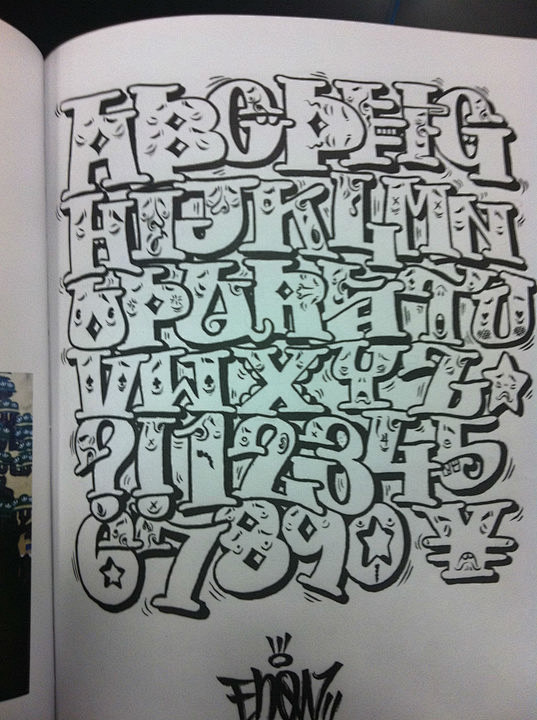 ABCDEFG
HIJKLMN
OPQRSTU
VWXYZ
?!12345
67890 ¥